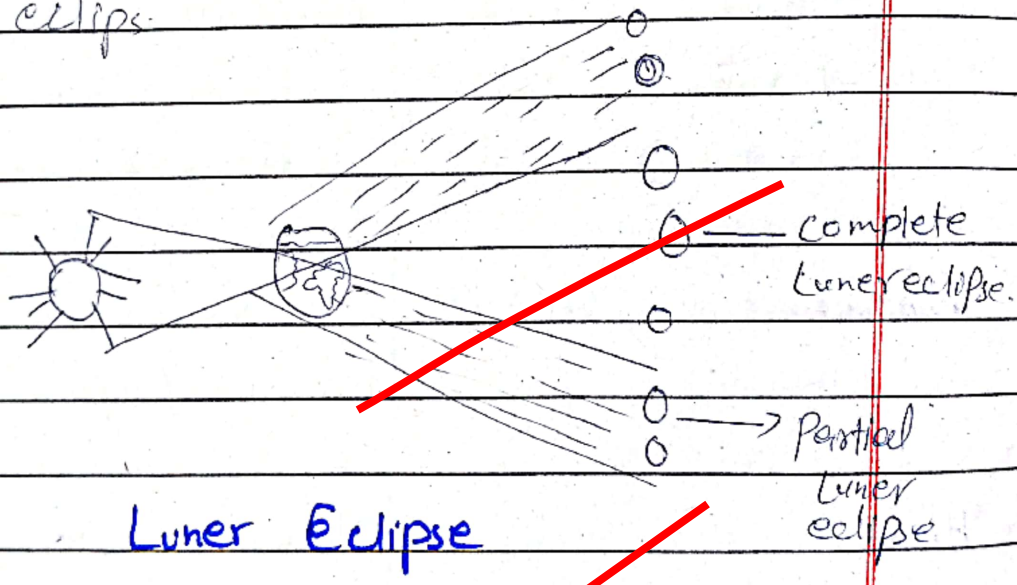 eclips
complete
Luner eclipse.
Partial
Luner
eclipse
Luner Eclipse